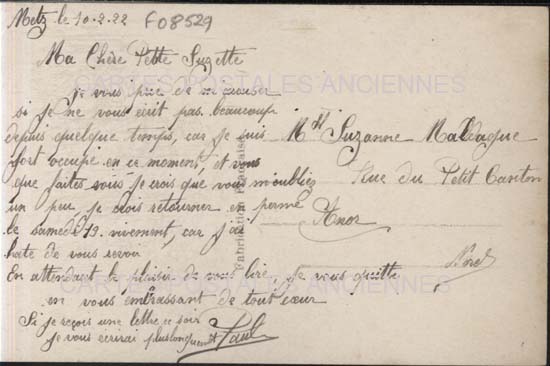 Metz le 10.2.22
F08529
Ma Chère Petite Suzette
je vous prie de m'excuser
si je ne vous écrit pas beaucoup
depuis quelque temps, car je suis
fort occupé en ce moment, et vous
que faites vous je crois que vous m'oubliez
un peu je dois retourner en perme
le samedi 19. vivement, car j'ai
hate de vous revoir
En attendant le plaisir de vous lire je vous quitte
en vous embrassant de tout cœur
Si je reçois une lettre ce soir
je vous écrirai plus longuement Paul
Mlle Suzanne Maldague
Rue du Petit Canton
Anor
Nord
Fabrication Française
CARTES POSTALES ANCIENNES
CARTES POSTALES ANCIENNES